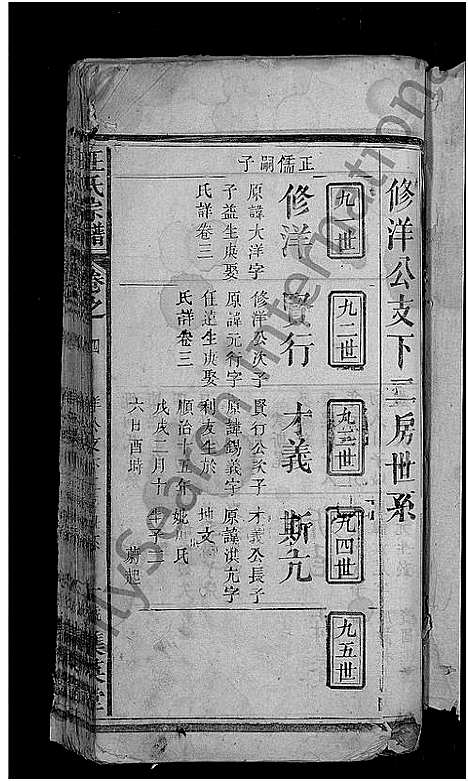 修洋公支下二房世系
九一世
正儒嗣子
修洋
原諱大洋字
子益生庚娶
氏詳卷三
九二世
賢行
修洋公次子
原諱元行字
任遠生庚娶
氏詳卷三
九三世
才義
賢行公次子
原諱錫義字
利友生於
順治十五年
戊戌二月十
六日酉時
九四世
斯亢
才義公長子
原諱淇亢字
坤文
九五世
氏宗譜
卷之四